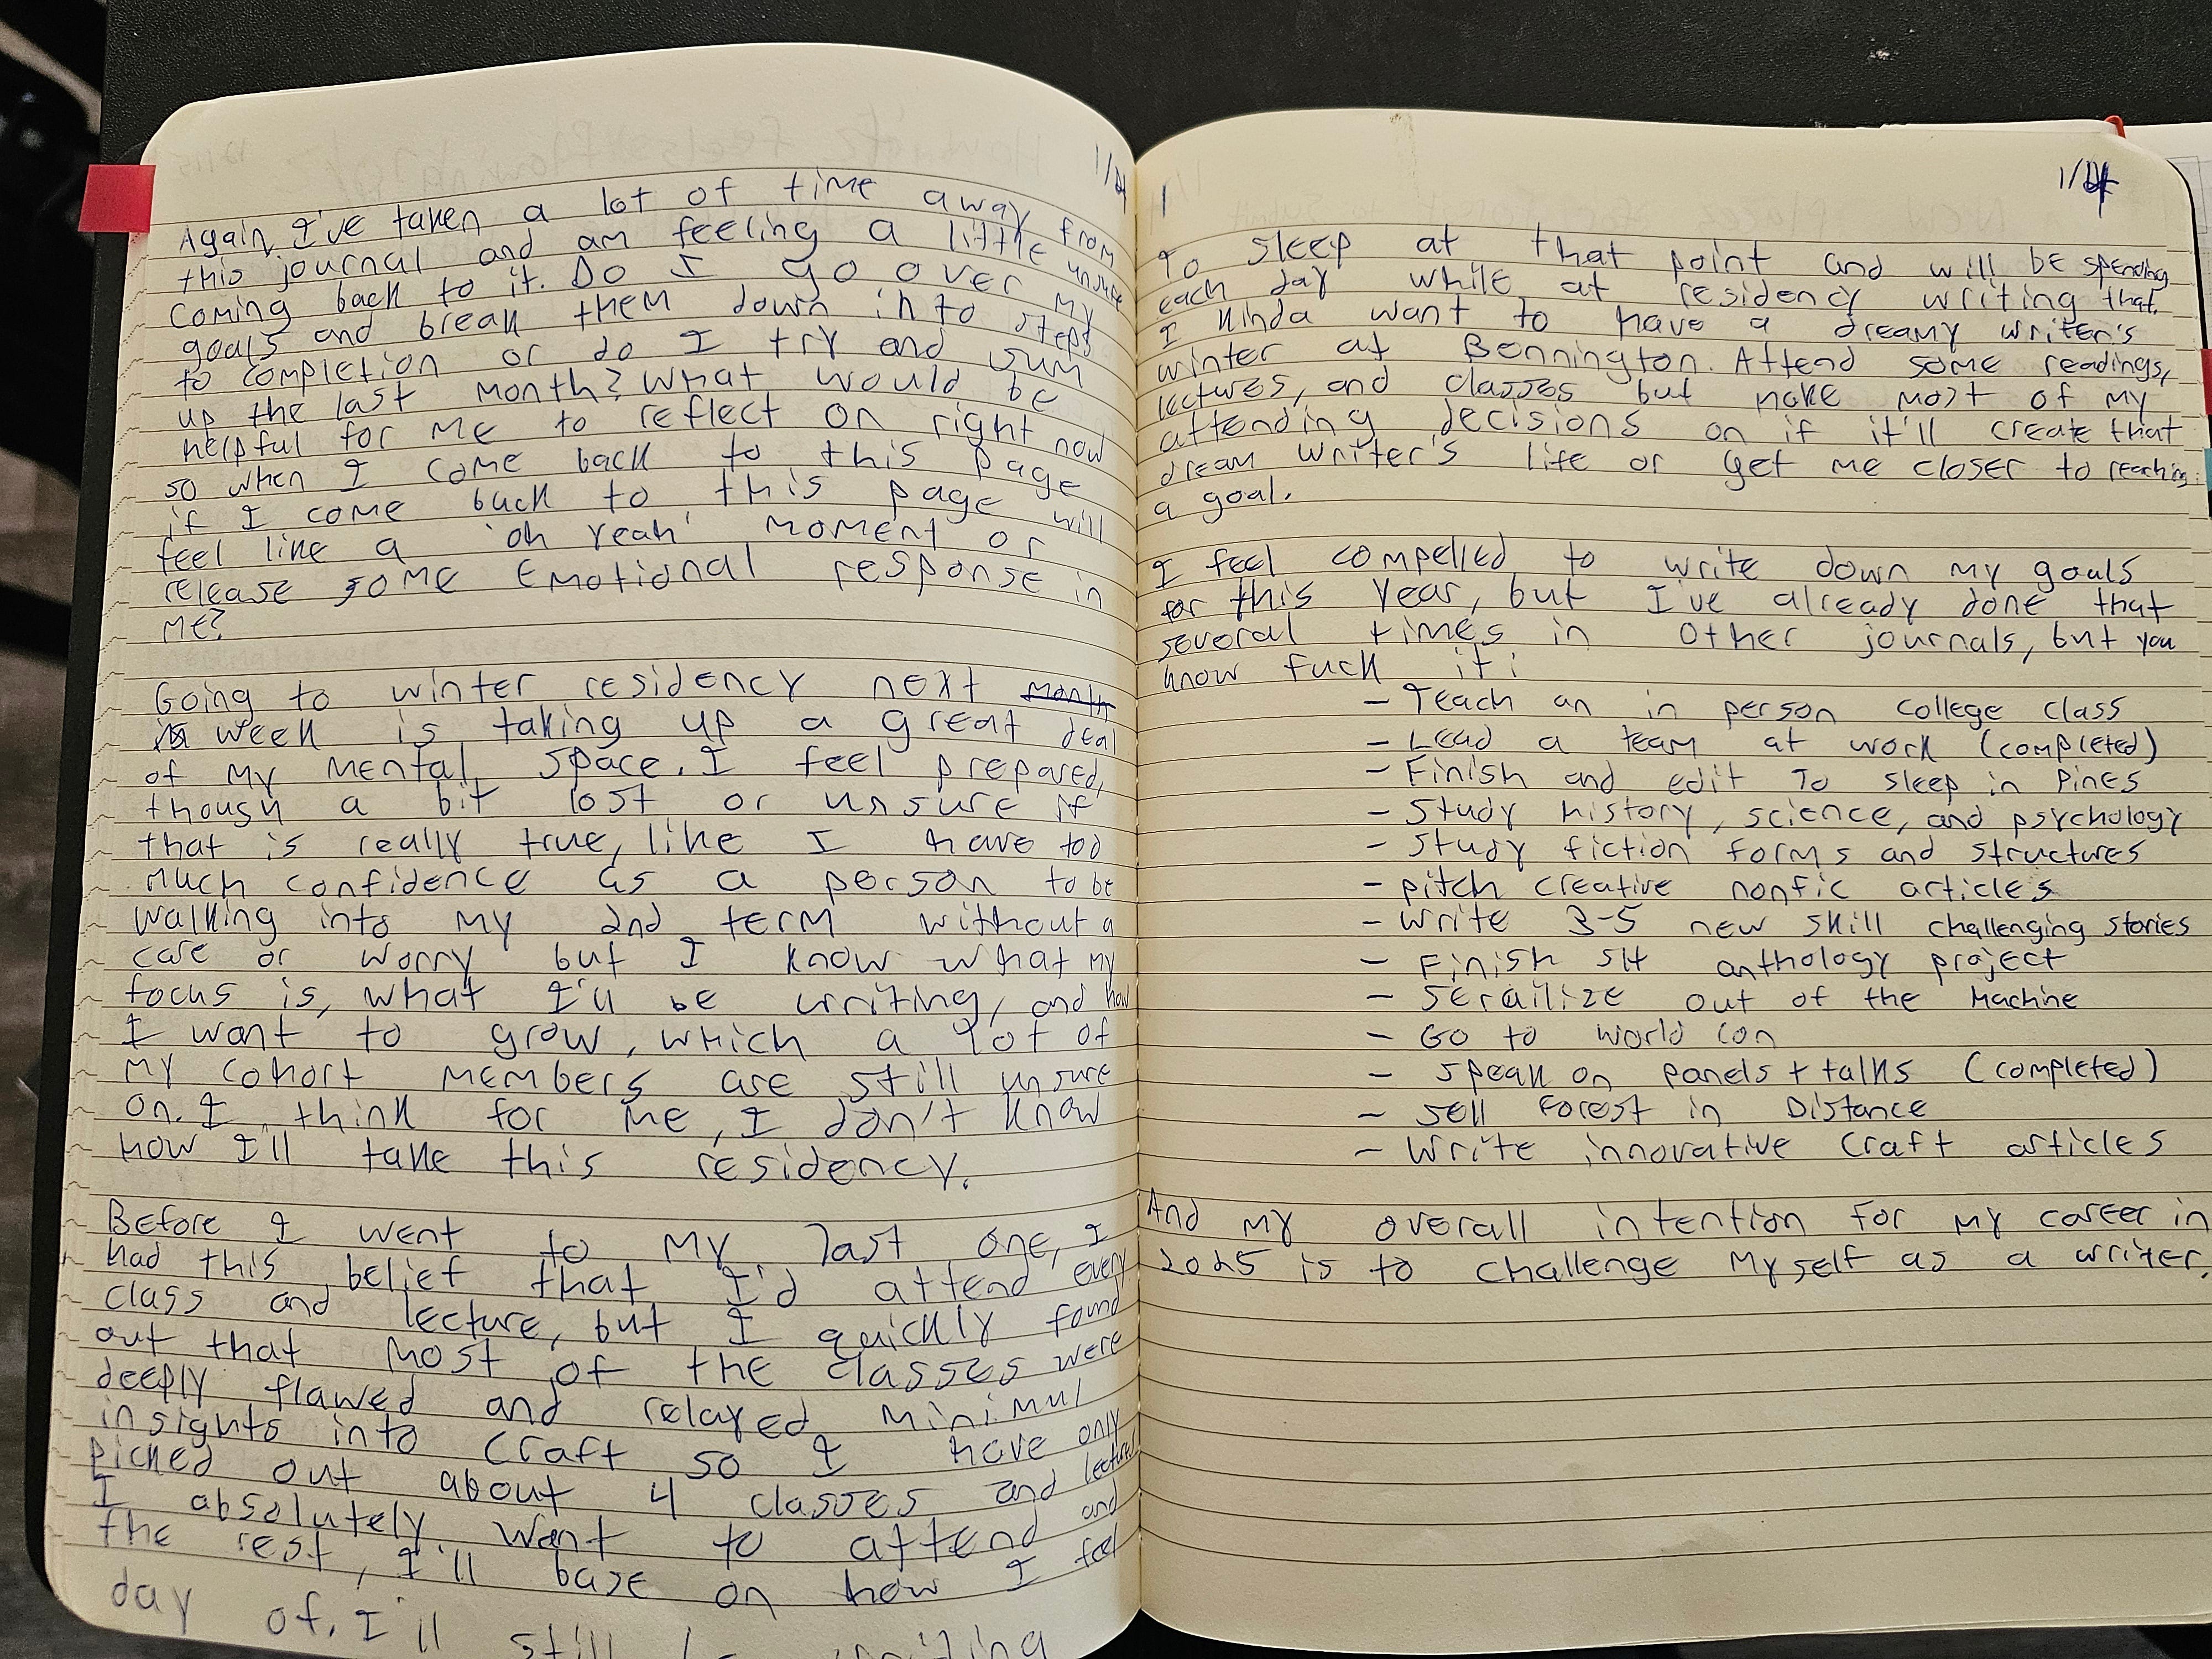 1/4
Again, I've taken a lot of time away from
this journal and am feeling a little unsure
coming back to it. Do I go over my
goals and break them down into steps
to completion or do I try and sum
up the last month? What would be
helpful for me to reflect on right now
so when I come back to this page
if I come back to this page will
feel like a 'oh yeah' moment or
release some emotional response in
me?
Going to winter residency next month
week is taking up a great deal
of my mental space. I feel prepared,
though a bit lost or unsure if
that is really true, like I have too
much confidence as a person to be
walking into my 2nd term without a
care or worry but I know what my
focus is, what I'll be writing, and how
I want to grow, which a lot of
my cohort members are still unsure
on. I think for me, I don't know
how I'll take this residency.
Before I went to my last one, I
had this belief that I'd attend every
class and lecture, but I quickly found
out that most of the classes were
deeply flawed and relayed minimul
insights into craft so I have only
picked out about 4 classes and lectures
I absolutely want to attend and
the rest, I'll base on how I feel
day of. I'll still be writing
1/4
To sleep at that point and will be spending
each day while at residency writing that.
I kinda want to have a dreamy writer's
winter at Bennington. Attend some readings,
lectures, and classes but make most of my
attending decisions on if it'll create that
dream writer's life or get me closer to reaching
a goal.
I feel compelled to write down my goals
for this year, but I've already done that
several times in other journals, but you
know fuck it:
- Teach an in person college class
- Lead a team at work (completed)
- Finish and edit To sleep in Pines
- Study history, science, and psychology
- Study fiction forms and structures
- pitch creative nonfic articles
- Write 3-5 new skill challenging stories
- Finish SH anthology project
- Serailize out of the Machine
- Go to world con
- speak on panels + talks (completed)
- sell Forest in Distance
- Write innovative craft articles
And my overall intention for my career in
2025 is to challenge myself as a writer.